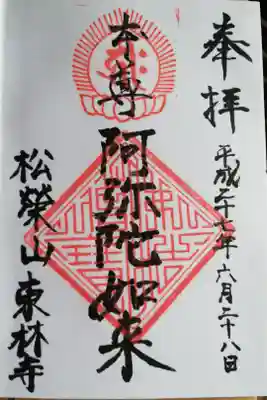 奉拝
平成二十七年六月二十八日
本尊
阿弥陀如来
松榮山 東林寺